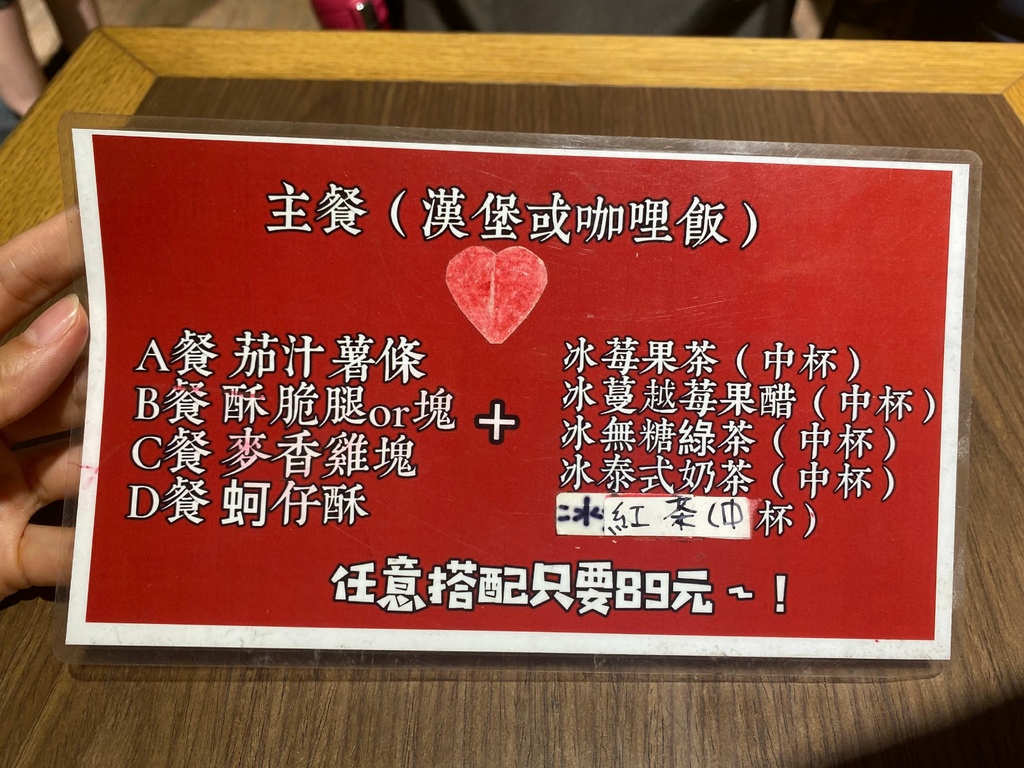 主餐（漢堡或咖哩飯）
A餐 茄汁薯條
B餐 酥脆腿or塊
C餐 麥香雞塊
D餐 蚵仔酥
+
冰莓果茶（中杯）
冰蔓越莓果醋（中杯）
冰無糖綠茶（中杯）
冰泰式奶茶（中杯）
冰紅茶（中杯）
任意搭配只要89元~！